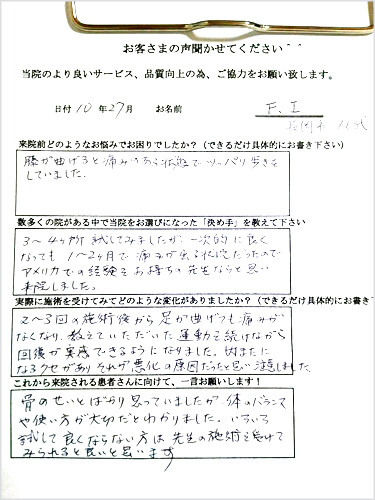 お客さまの声聞かせてください^^
当院のより良いサービス、品質向上の為、ご協力をお願い致します。
日付 10年27月 お名前 F. I
来院前どのようなお悩みでお困りでしたか?(できるだけ具体的にお書き下さい)
膝が曲げると痛みのある状態でツッパリ歩きを
していました。
数多くの院がある中で当院をお選びになった「決め手」を教えて下さい
3～4ヶ所試してみましたが一次的に良く
なっても1～2ヶ月で痛みが出る状況だったので
アメリカでの経験をお持ちの先生ならと思い
来院しました。
実際に施術を受けてみてどのような変化がありましたか?(できるだけ具体的にお書き
2～3回の施術後から足が曲げても痛みが
なくなり、教えていただいた運動を続けながら
回復が実感できるようになりました。内またに
なるクセがありそれが悪化の原因だったと思い注意しました
これから来院される患者さんに向けて、一言お願いします!
骨のせいとばかり思っていましたが、体のバランス
や使い方が大切だとわかりました。いろいろ
試して良くならない方は先生の施術を受けて
みられると良いと思います